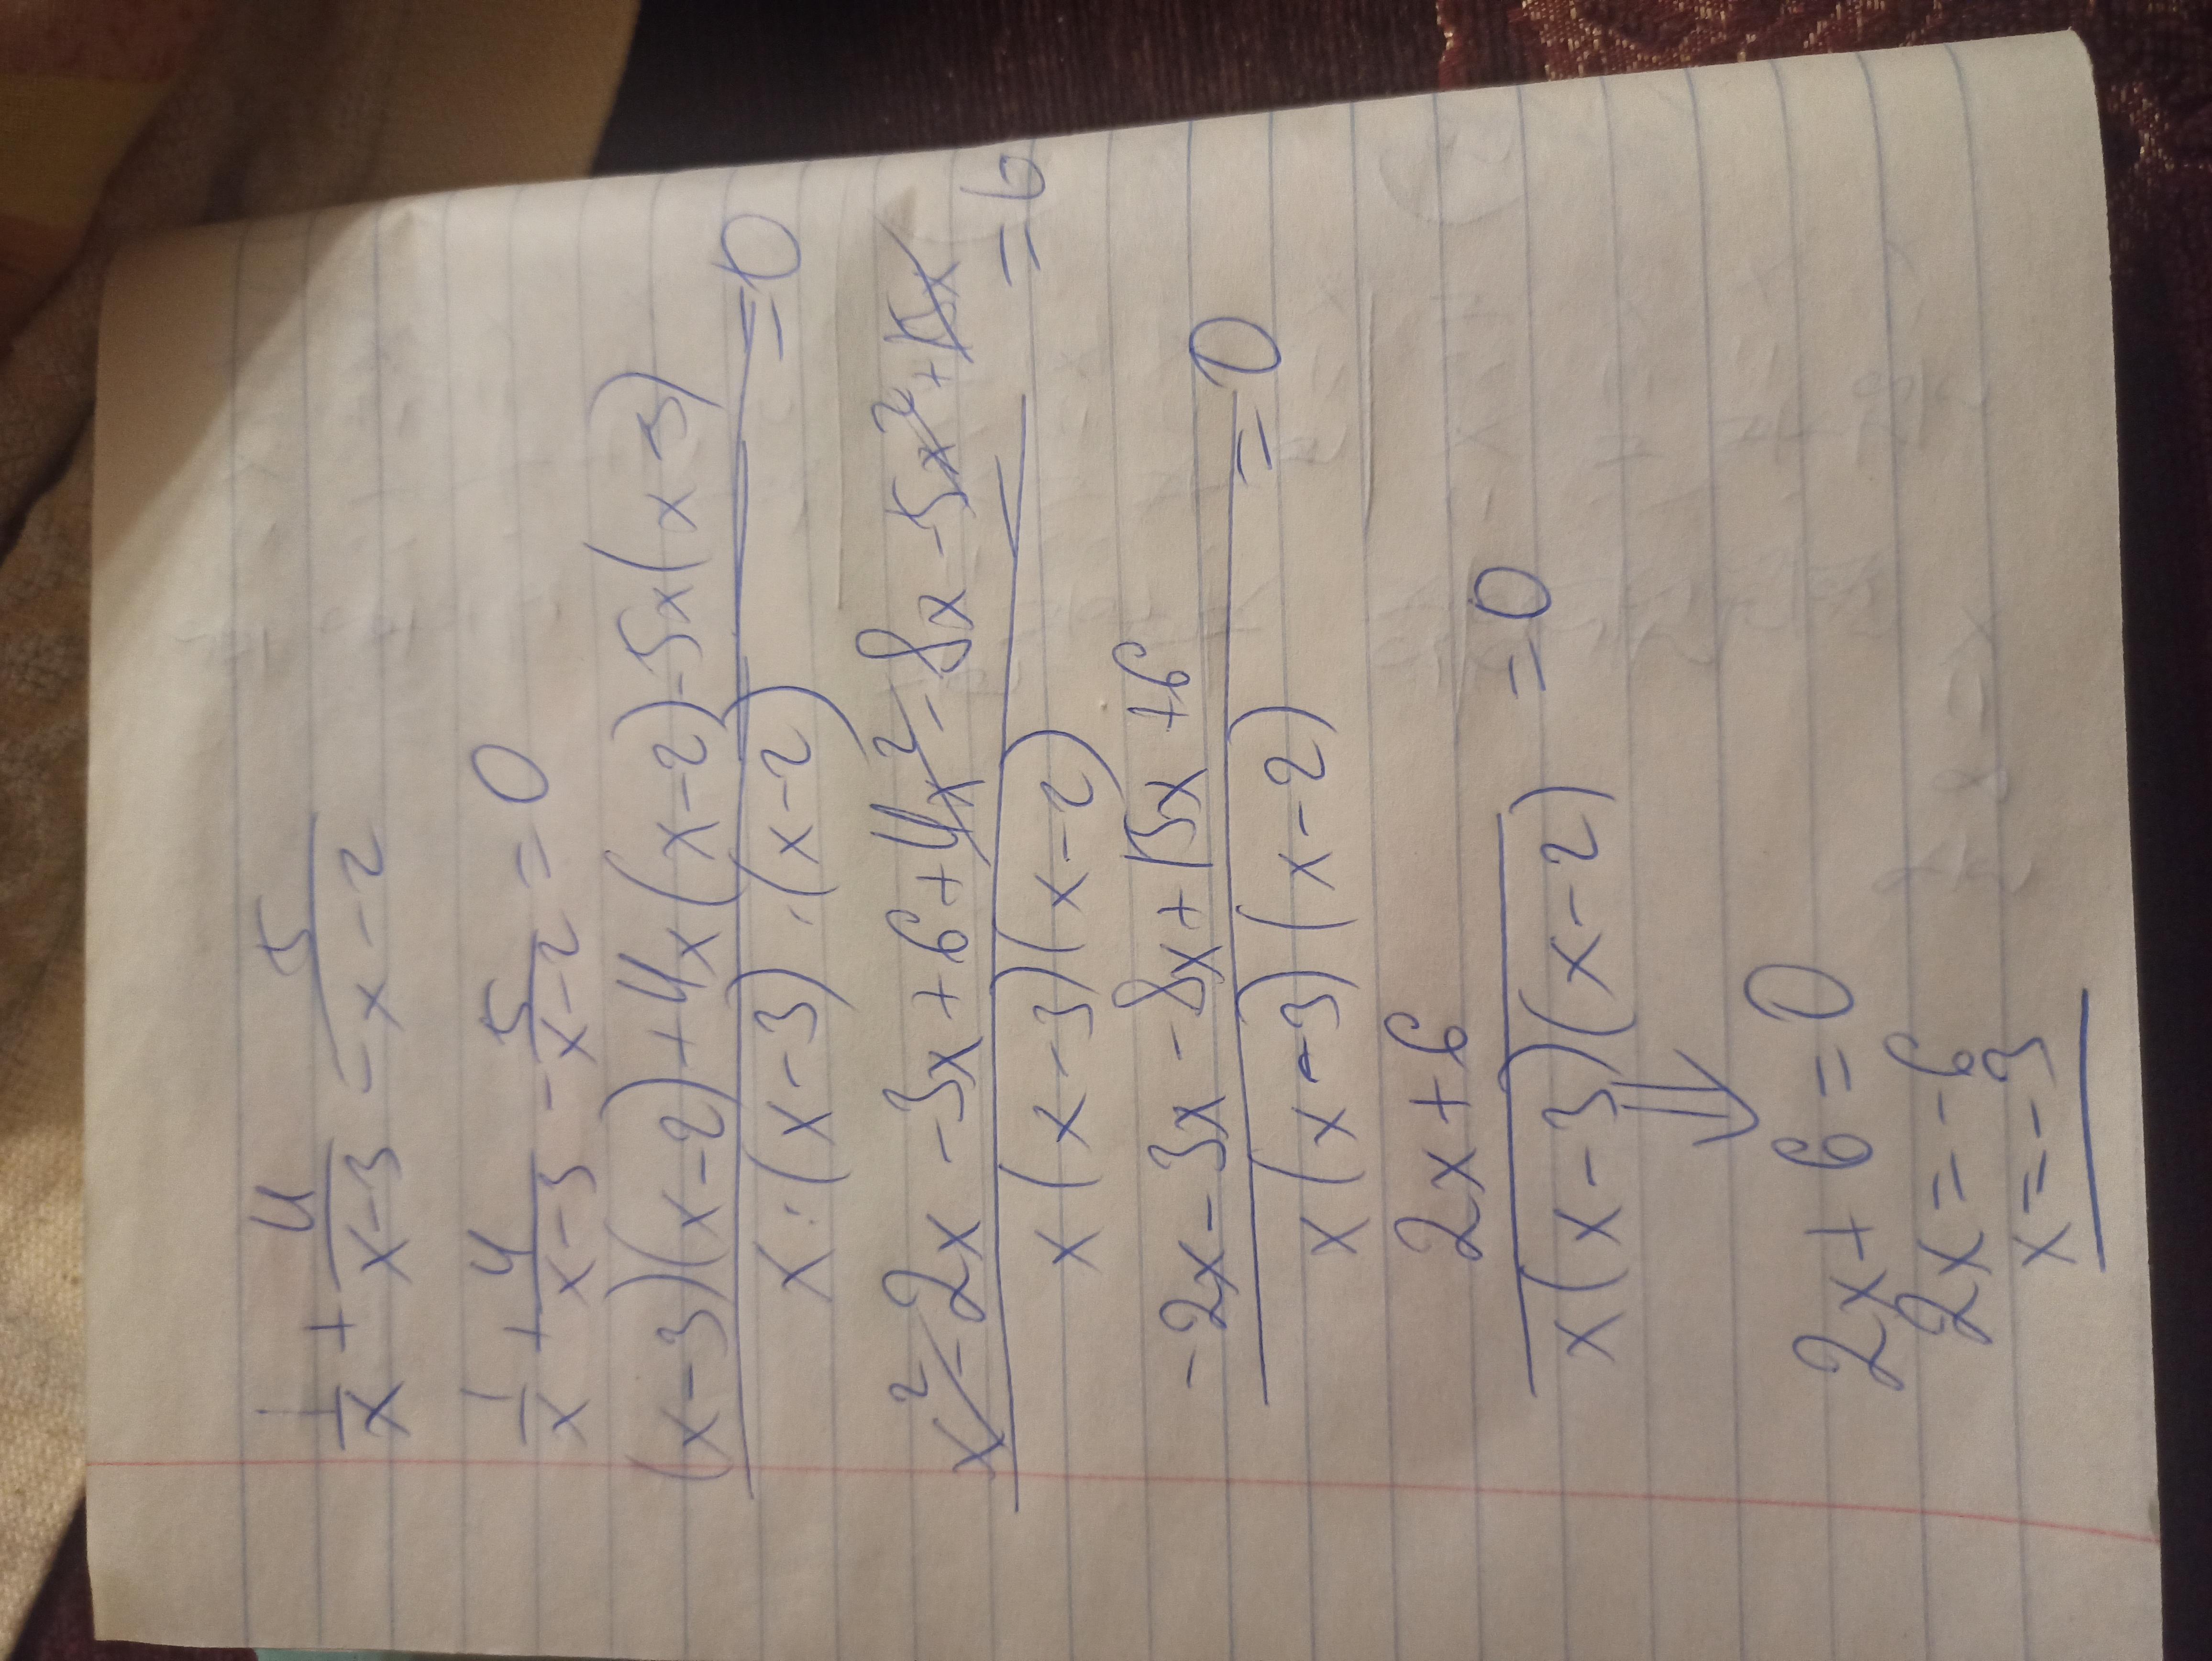 1/x + 4/(x-3) = 5/(x-2)
1/x + 4/(x-3) - 5/(x-2) = 0
((x-3)(x-2)+4x(x-2)-5x(x-3))/(x·(x-3)·(x-2)) = 0
(x²-2x-3x+6+4x²-8x-5x²+15x)/(x(x-3)(x-2)) = 0
(-2x-3x-8x+15x+6)/(x(x-3)(x-2)) = 0
(2x+6)/(x(x-3)(x-2)) = 0
⇓
2x+6=0
2x=-6
x=-3